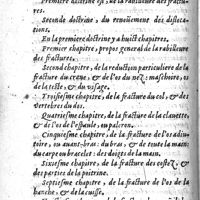 Premiere doctrine est, de la rabilleure des fractures.
Seconde doctrine, du renoüement des disloca-
tions.
En la premiere doctrine y a huict chapitres.
Premier chapitre, propos general de la rabilleure
des fractures.
Second chapitre, de la reduction particuliere de la
fracture du crane, & de l'os du nez: maschoire, os
de la teste, & du visage.
Troisiesme chapitre, de la fracture du col, & des
vertebres du dos.
Quatriesme chapitre, de la fracture de la clauette,
& de l'os de l'espaule, ou paleron.
Cinquiesme chapitre, de la fracture de l'os adiu-
toire, ou auant-bras: du bras, & de toute la main:
du carpe ou brace let: des doigs de la main.
Sixiesme chapitre, de la fracture des costez, &
des parties de la poitrine.
Septiesme chapitre, de la fracture de l'os de la
hanche, & de la cuisse.